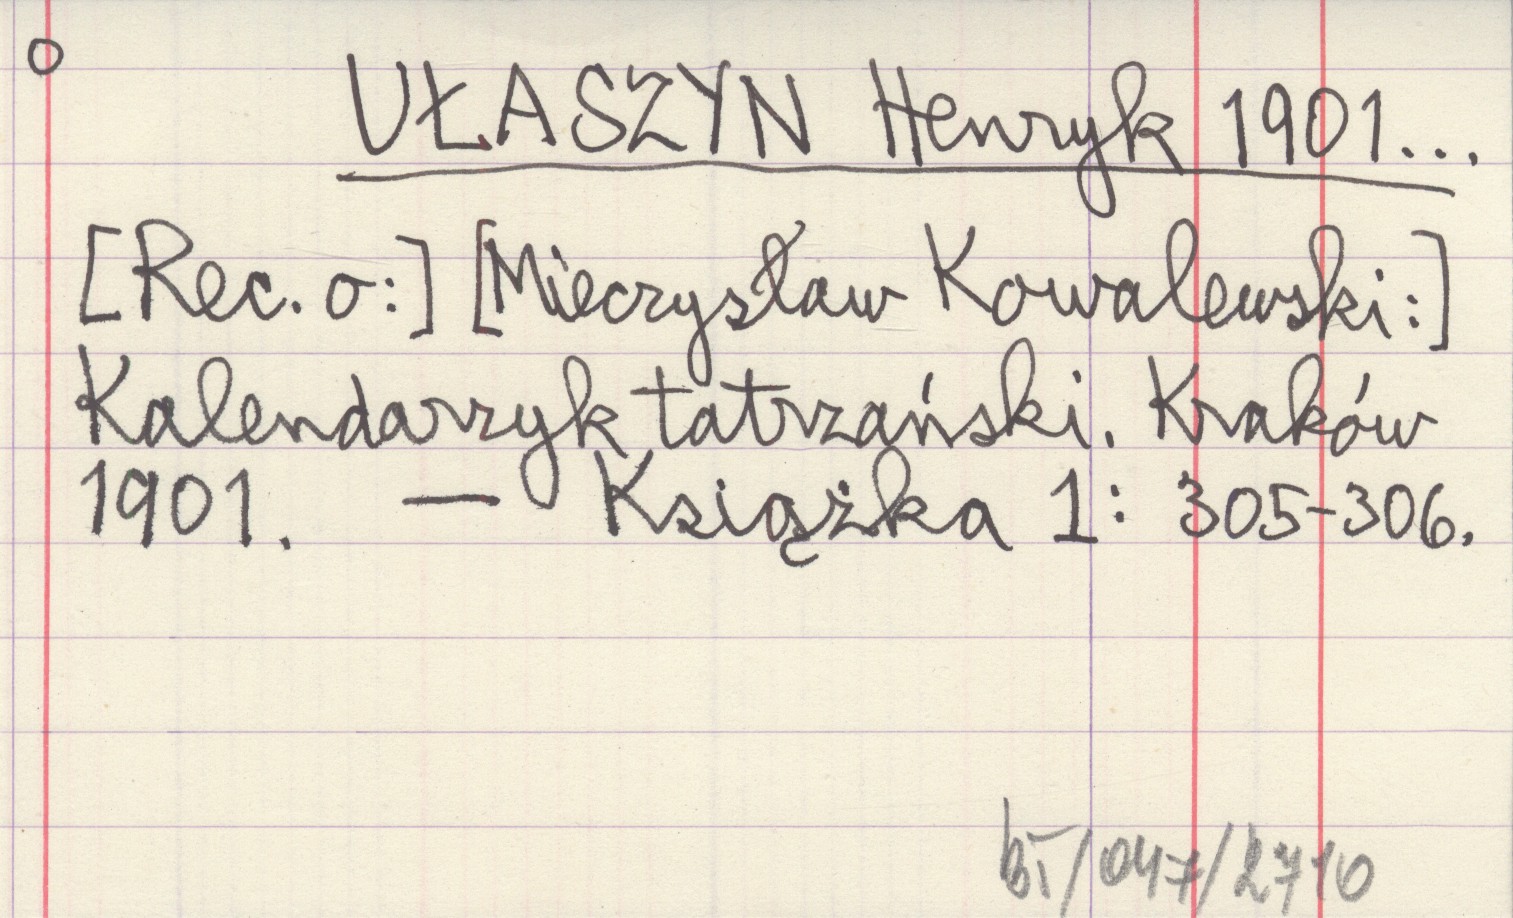 o
UŁASZYN Henryk 1901...
[Rec. o:] [Mieczysław Kowalewski:]
Kalendarzyk tatrzański. Kraków
1901. — Książka 1: 305-306.
BT/047/2710